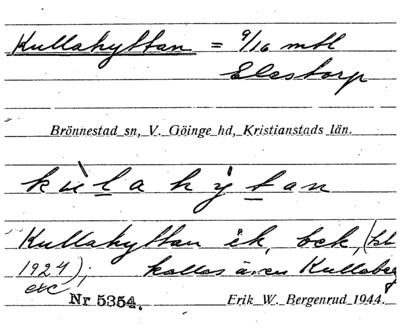 Kullahyttan = 9/16 mtl
Elestorp
Brönnestad sn, V. Göinge hd, Kristianstads län.
kùlahỳtan
Kullahyttan ek, bek,
1924); kallas även Kullaberg
etc
Nr 5354.
Erik W. Bergenrud 1944.